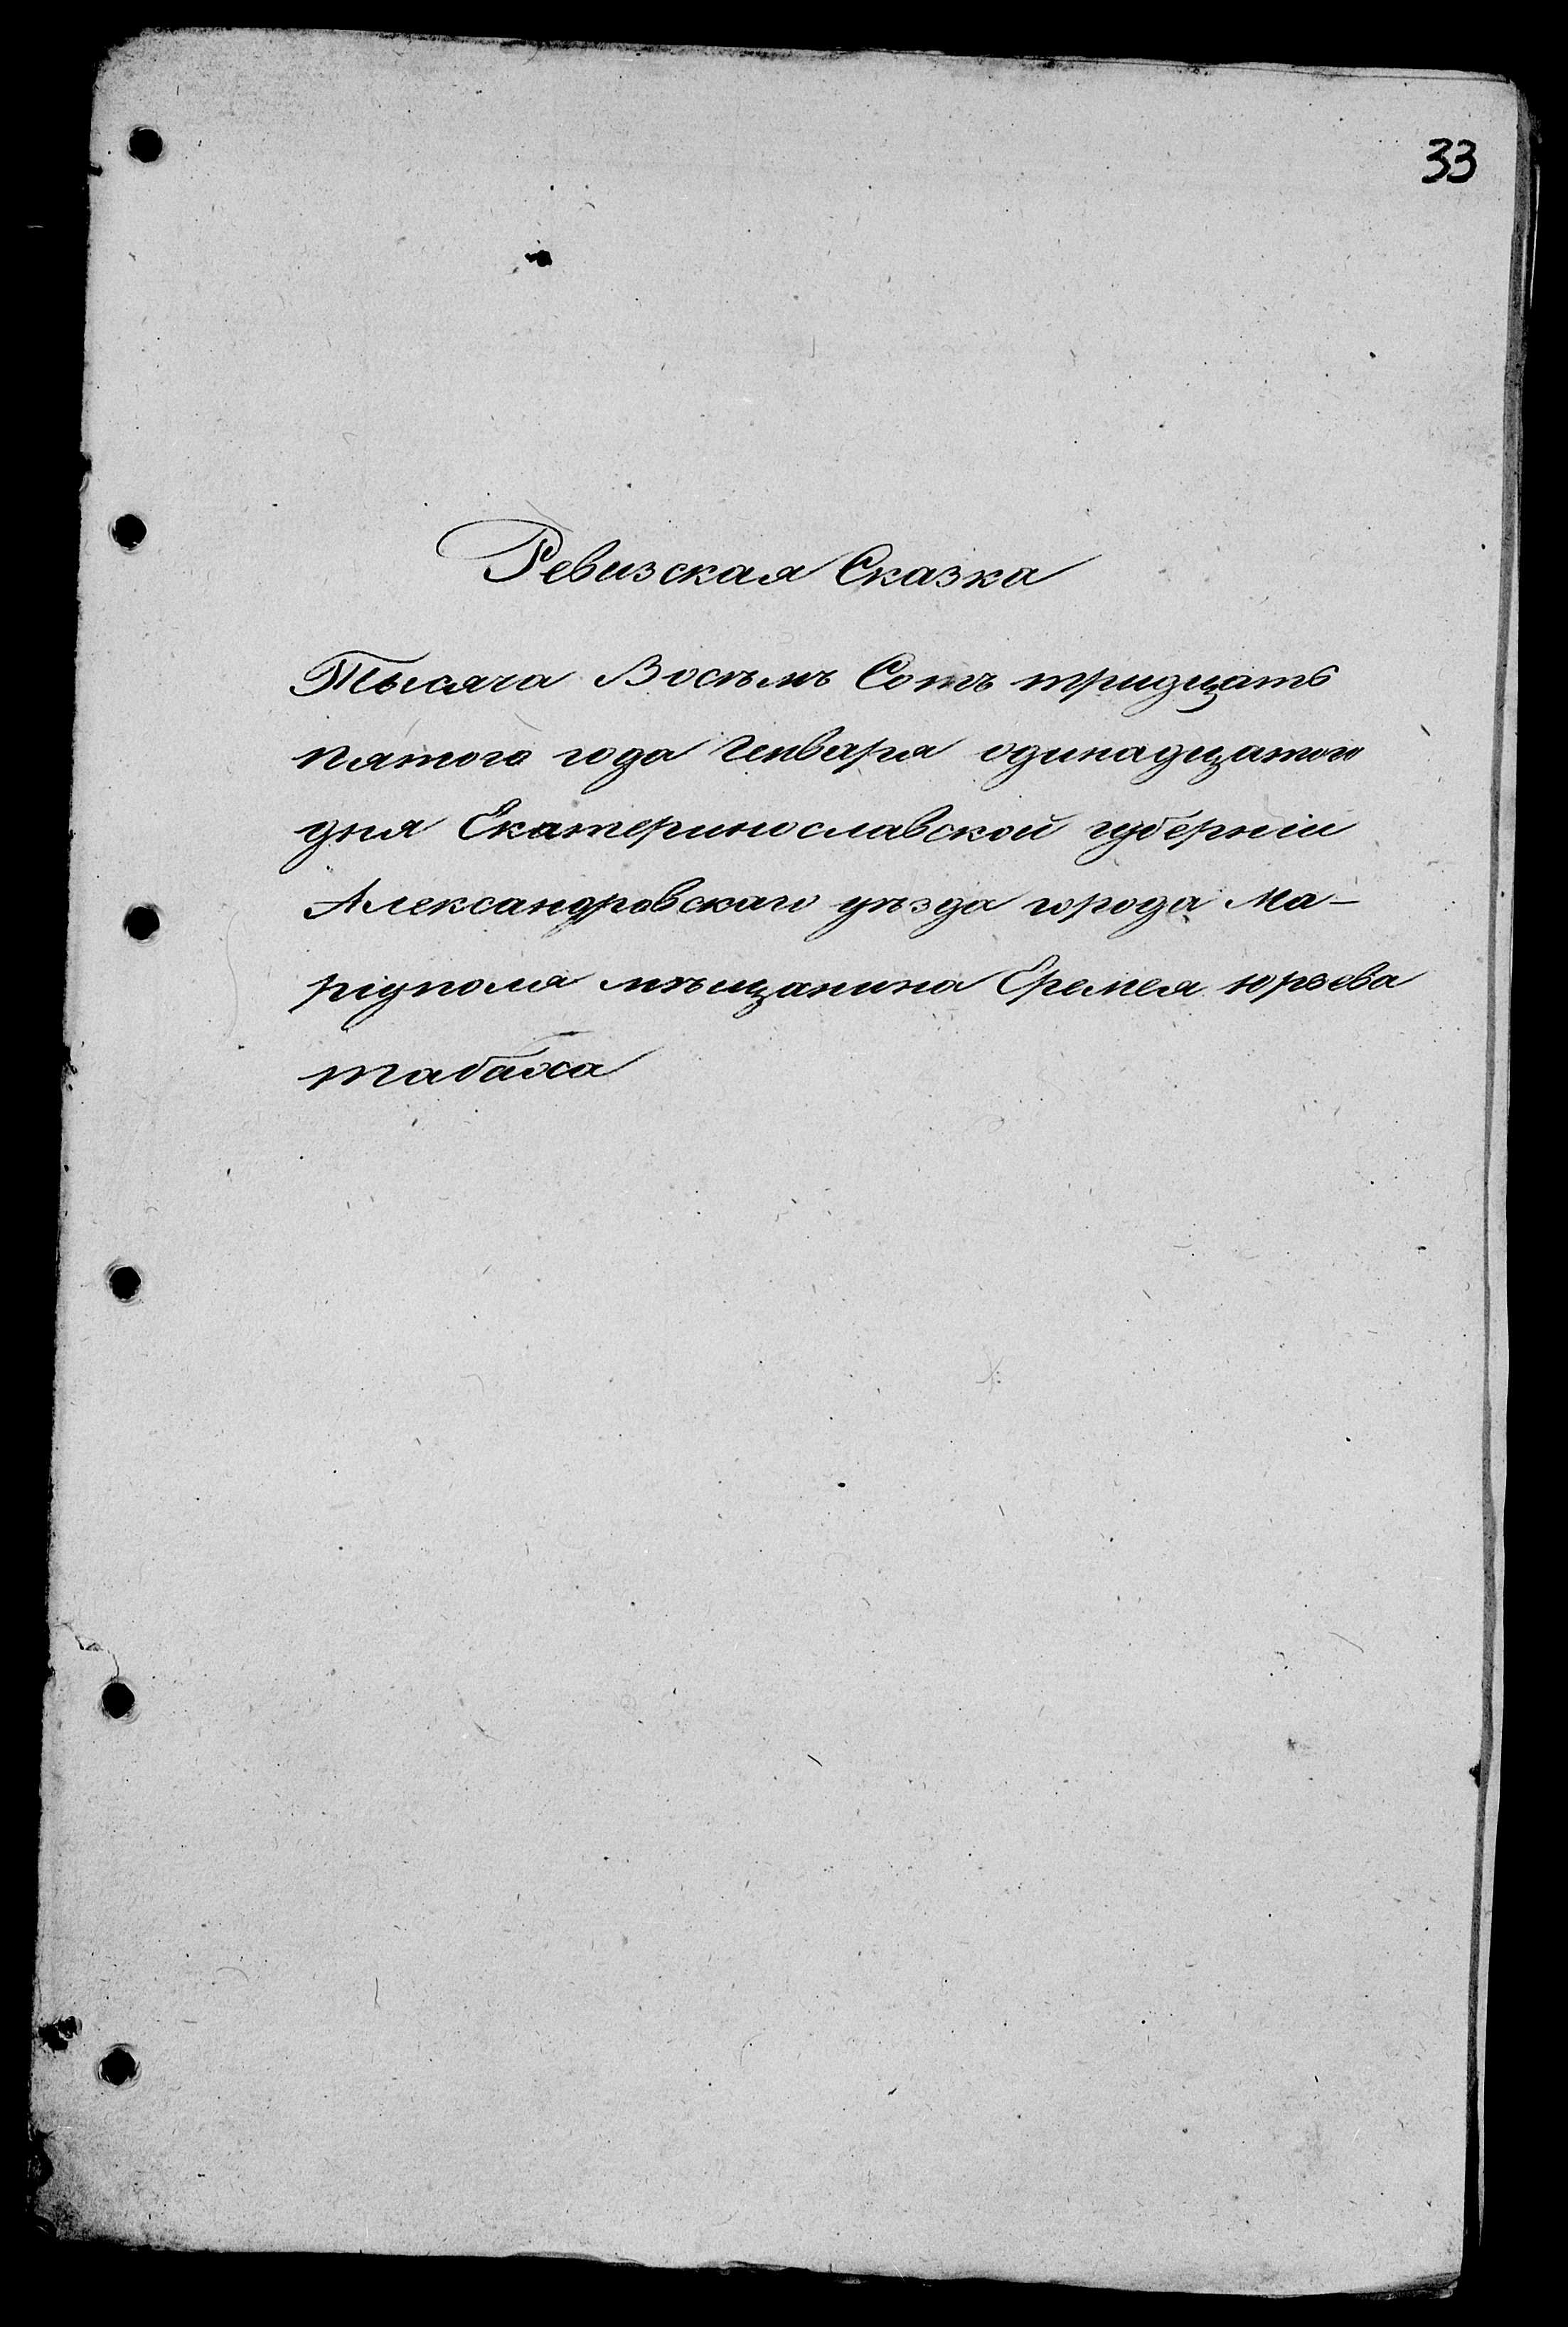 33
Ревизская Сказка
Тысяча Восѣмъ Сотъ тридцать
пятого года Генваря одинадцатого
дня Екатеринославской губерніи
Александровскаго уѣзда города Ма-
ріуполя мѣщанина Еремея юрьева